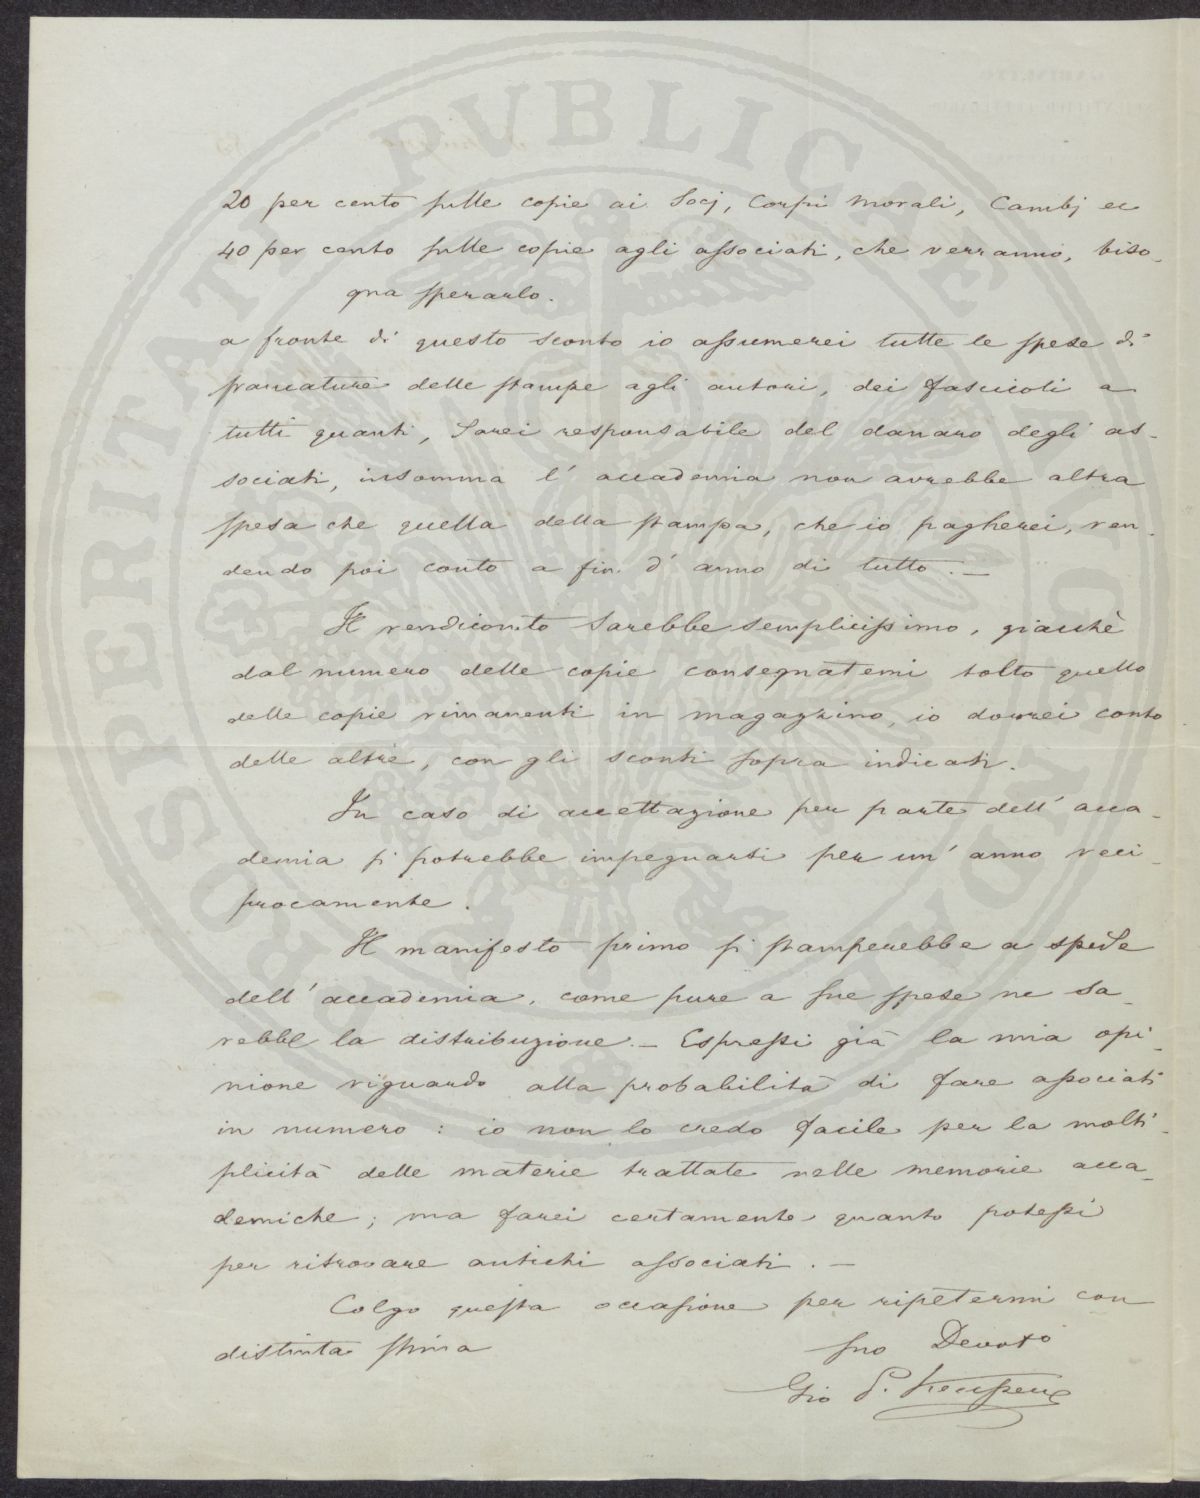 PROSPERITATI PUBLICAE AUGENDAE
20 per cento sulle copie ai Socj, Corpi Morali, Cambj ec
40 per cento sulle copie agli associati, che verranno, biso-
gna sperarlo.
a fronte di questo sconto io assumerei tutte le spese di
francature delle stampe agli autori, dei fascicoli a
tutti quanti, Sarei responsabile del danaro degli as-
sociati, insomma l'accademia non avrebbe altra
spesa che quella della stampa, che io pagherei, ren-
dendo poi conto a fin d'anno di tutto. —
Il rendiconto Sarebbe Semplicissimo, giacchè
dal numero delle copie consegnatemi tolto quello
delle copie rimanenti in magazzino, io dovrei conto
delle altre, con gli sconti sopra indicati.
In caso di accettazione per parte dell'acca-
demia si potrebbe impegnarsi per un'anno reci-
procamente.
Il manifesto primo si stamperebbe a spese
dell'accademia, come pure a sue spese ne sa-
rebbe la distribuzione. — Espressi già la mia opi-
nione riguardo alla probabilità di fare associati
in numero: io non lo credo facile per la molti-
plicità delle materie trattate nelle memorie acca-
demiche; ma farei certamente quanto potessi
per ritrovare antichi associati. —
Colgo questa occasione per ripetermi con
distinta stima
Suo Devoto
Gio